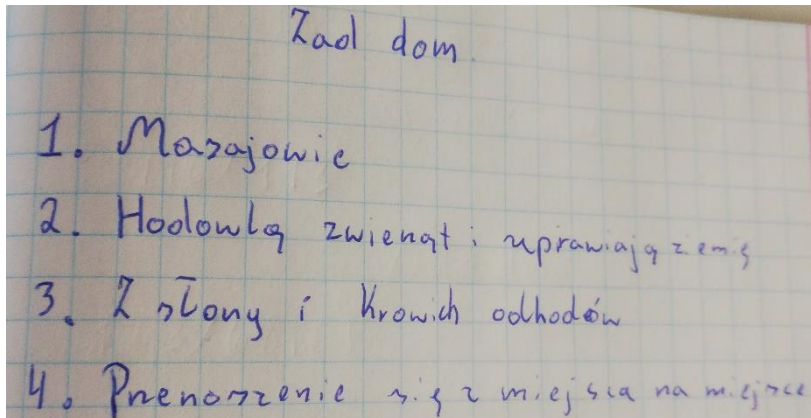 Zad dom.
1. Masajowie
2. Hodowlą zwierząt i uprawiają ziemię
3. Z słony i Krowich odhodów
4. Przenoszenie się z miejsca na miejsce